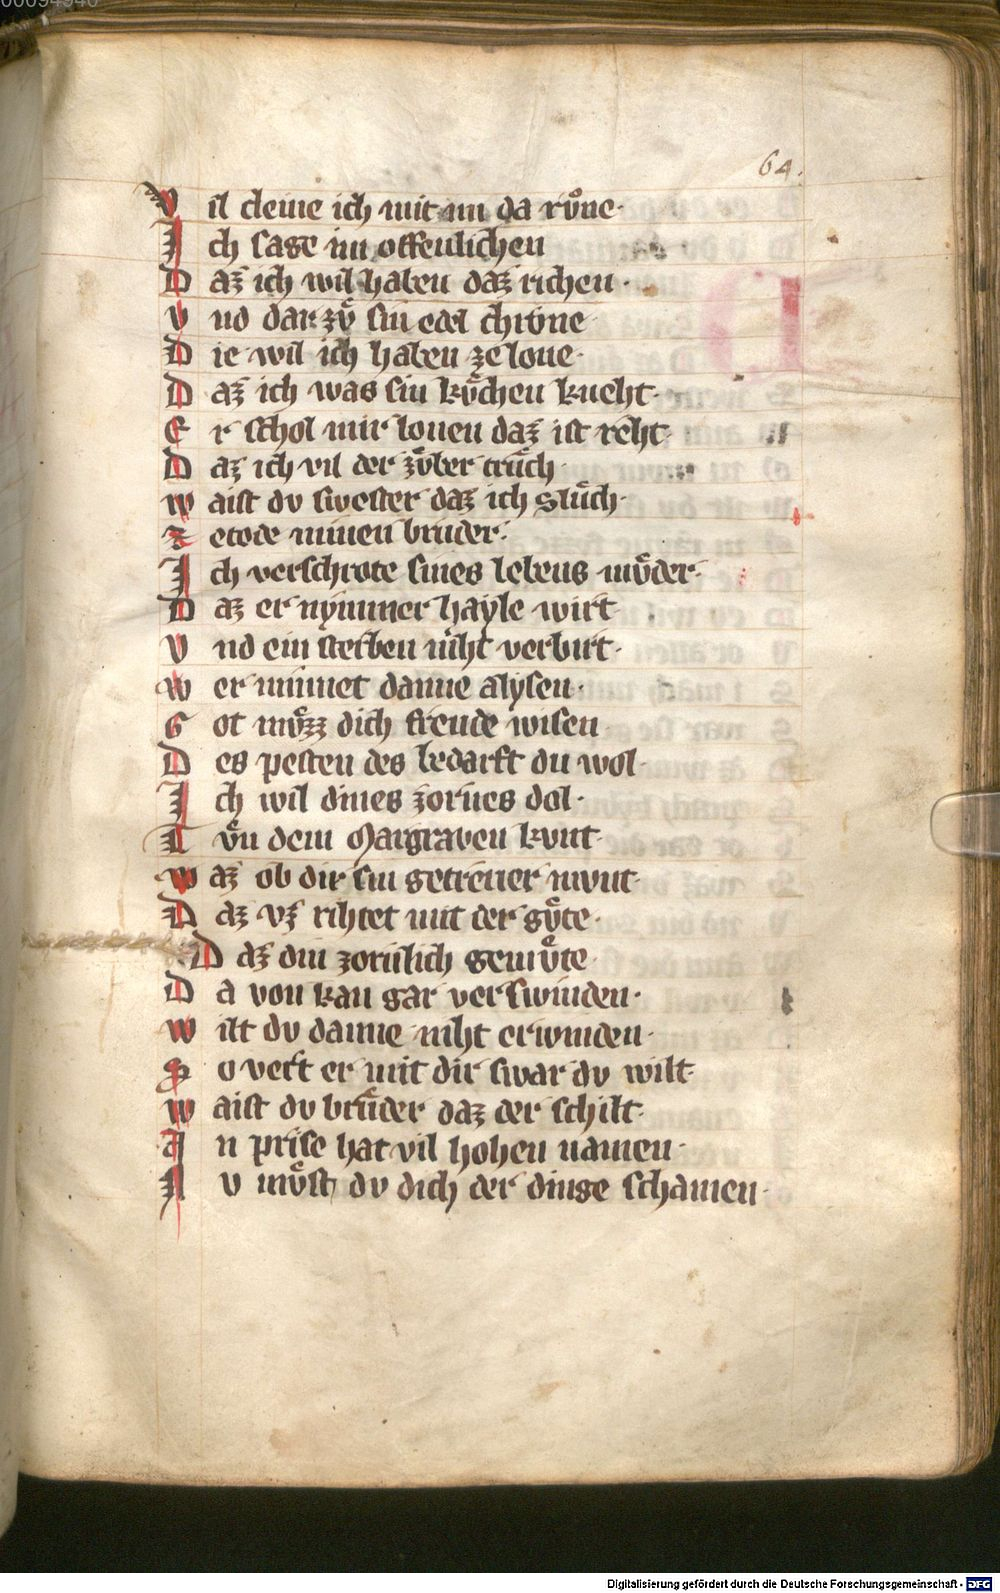 00094946
64.
V il cleine ich mit im da rv̊ne·
I ch sage im offenlichen
D az ich wil haben daz richen·
V nd dar zv̊ sin edel chrone·
D ie wil ich haben ze lone·
D az ich was sin kv̊chen kneht·
E r schol mir lonen daz ist reht·
D az ich vil der zv̊ber truch·
W aist dv swester daz ich sluch·
Z etode minen bruder·
I ch verschrote sines lebens mv̊der·
D az er nymmer hayle wirt·
V nd ein sterben niht verbirt·
W er minnet danne alysen·
G ot mv̊zz dich freude wisen
D es pesten des bedarft du wol·
I ch wil dines zornes dol·
T v̊n dem Margraven kvnt·
W az ob dir sin getrewer mvnt·
D az vz rihtet mit der gv̊te·
D az din zornlich gemv̊te·
D a von kan gar verswinden·
W ilt dv danne niht erwinden·
S o vert er mit dir swar dv wilt·
W aist dv bruder daz der schilt·
A n prise hat vil hohen namen·
N v mv̊st dv dich der dinge schamen·
Digitalisierung gefördert durch die Deutsche Forschungsgemeinschaft - DFG